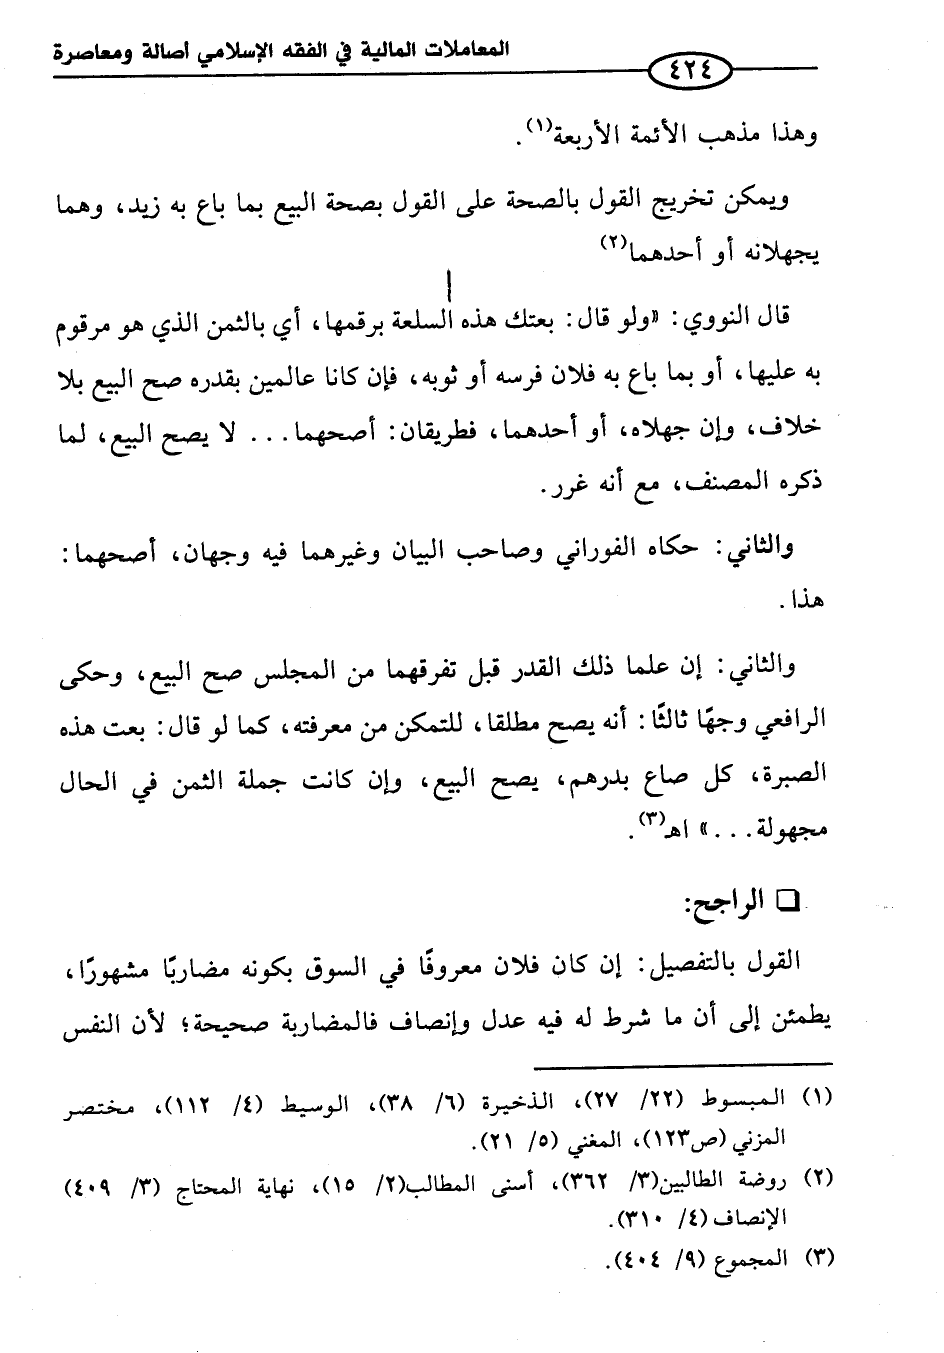 المعاملات المالية في الفقه الإسلامي أصالة ومعاصرة
٤٢٤
وهذا مذهب الأئمة الأربعة(١).
ويمكن تخريج القول بالصحة على القول بصحة البيع بما باع به زيد، وهما
يجهلانه أو أحدهما(٢)
قال النووي: «ولو قال: بعتك هذه السلعة برقمها، أي بالثمن الذي هو مرقوم
به عليها، أو بما باع به فلان فرسه أو ثوبه، فإن كانا عالمين بقدره صح البيع بلا
خلاف، وإن جهلاه، أو أحدهما، فطريقان: أصحهما... لا يصح البيع، لما
ذكره المصنف، مع أنه غرر.
والثاني: حكاه الفوراني وصاحب البيان وغيرهما فيه وجهان، أصحهما:
هذا.
والثاني: إن علما ذلك القدر قبل تفرقهما من المجلس صح البيع، وحكى
الرافعي وجهًا ثالثًا: أنه يصح مطلقا، للتمكن من معرفته، كما لو قال: بعت هذه
الصبرة، كل صاع بدرهم، يصح البيع، وإن كانت جملة الثمن في الحال
مجهولة...» اهـ(٣).
❑ الراجح:
القول بالتفصيل: إن كان فلان معروفًا في السوق بكونه مضاربًا مشهورًا،
يطمئن إلى أن ما شرط له فيه عدل وإنصاف فالمضاربة صحيحة؛ لأن النفس
(١) المبسوط (٢٢/ ٢٧)، الذخيرة (٦/ ٣٨)، الوسيط (٤/ ١١٢)، مختصر
المزني (ص١٢٣)، المغني (٥/ ٢١).
(٢) روضة الطالبين(٣/ ٣٦٢)، أسنى المطالب(٢/ ١٥)، نهاية المحتاج (٣/ ٤٠٩)
الإنصاف (٤/ ٣١٠).
(٣) المجموع (٩/ ٤٠٤).